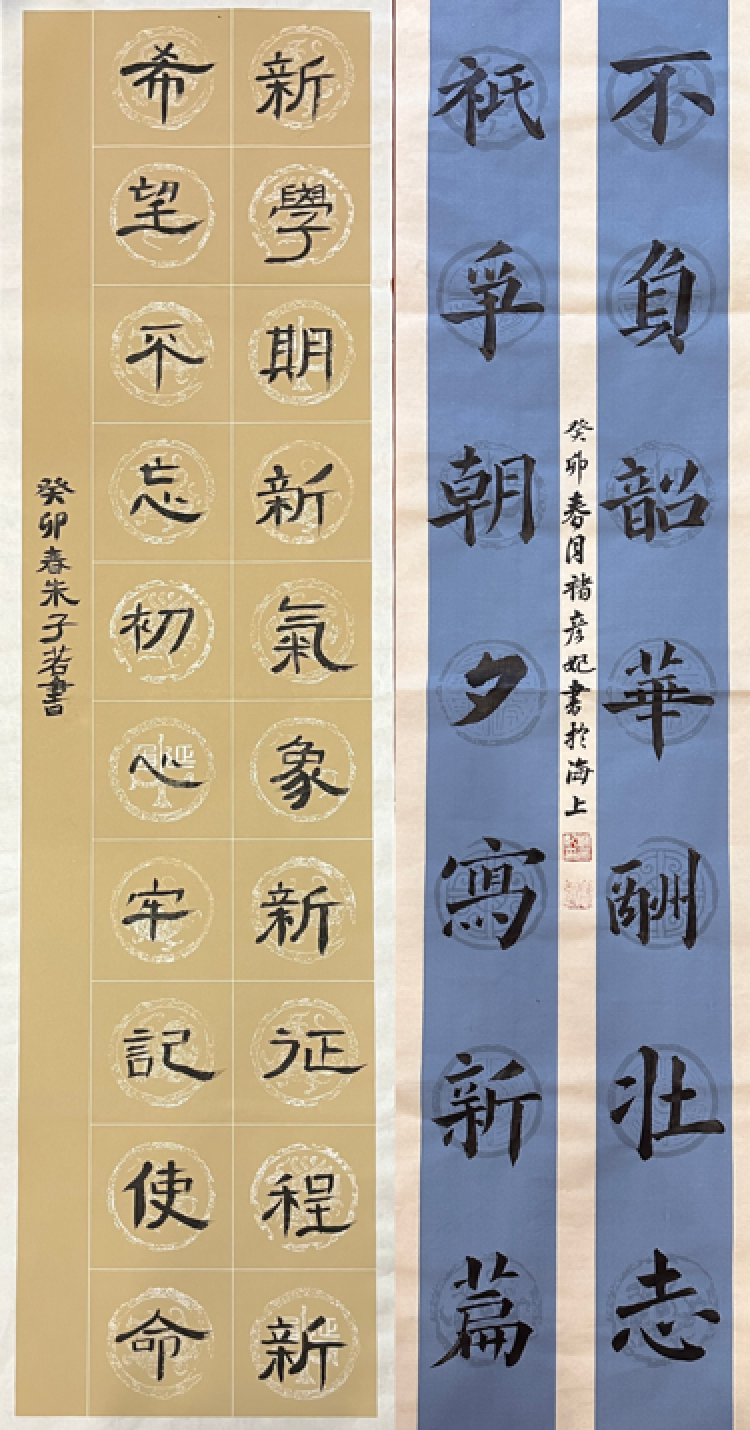 新學期新氣象新征程新
希望不忘初心牢記使命
癸卯春朱子若書
不負韶華酬壯志
祇爭朝夕寫新篇
癸卯春月褚彦妃書於海上